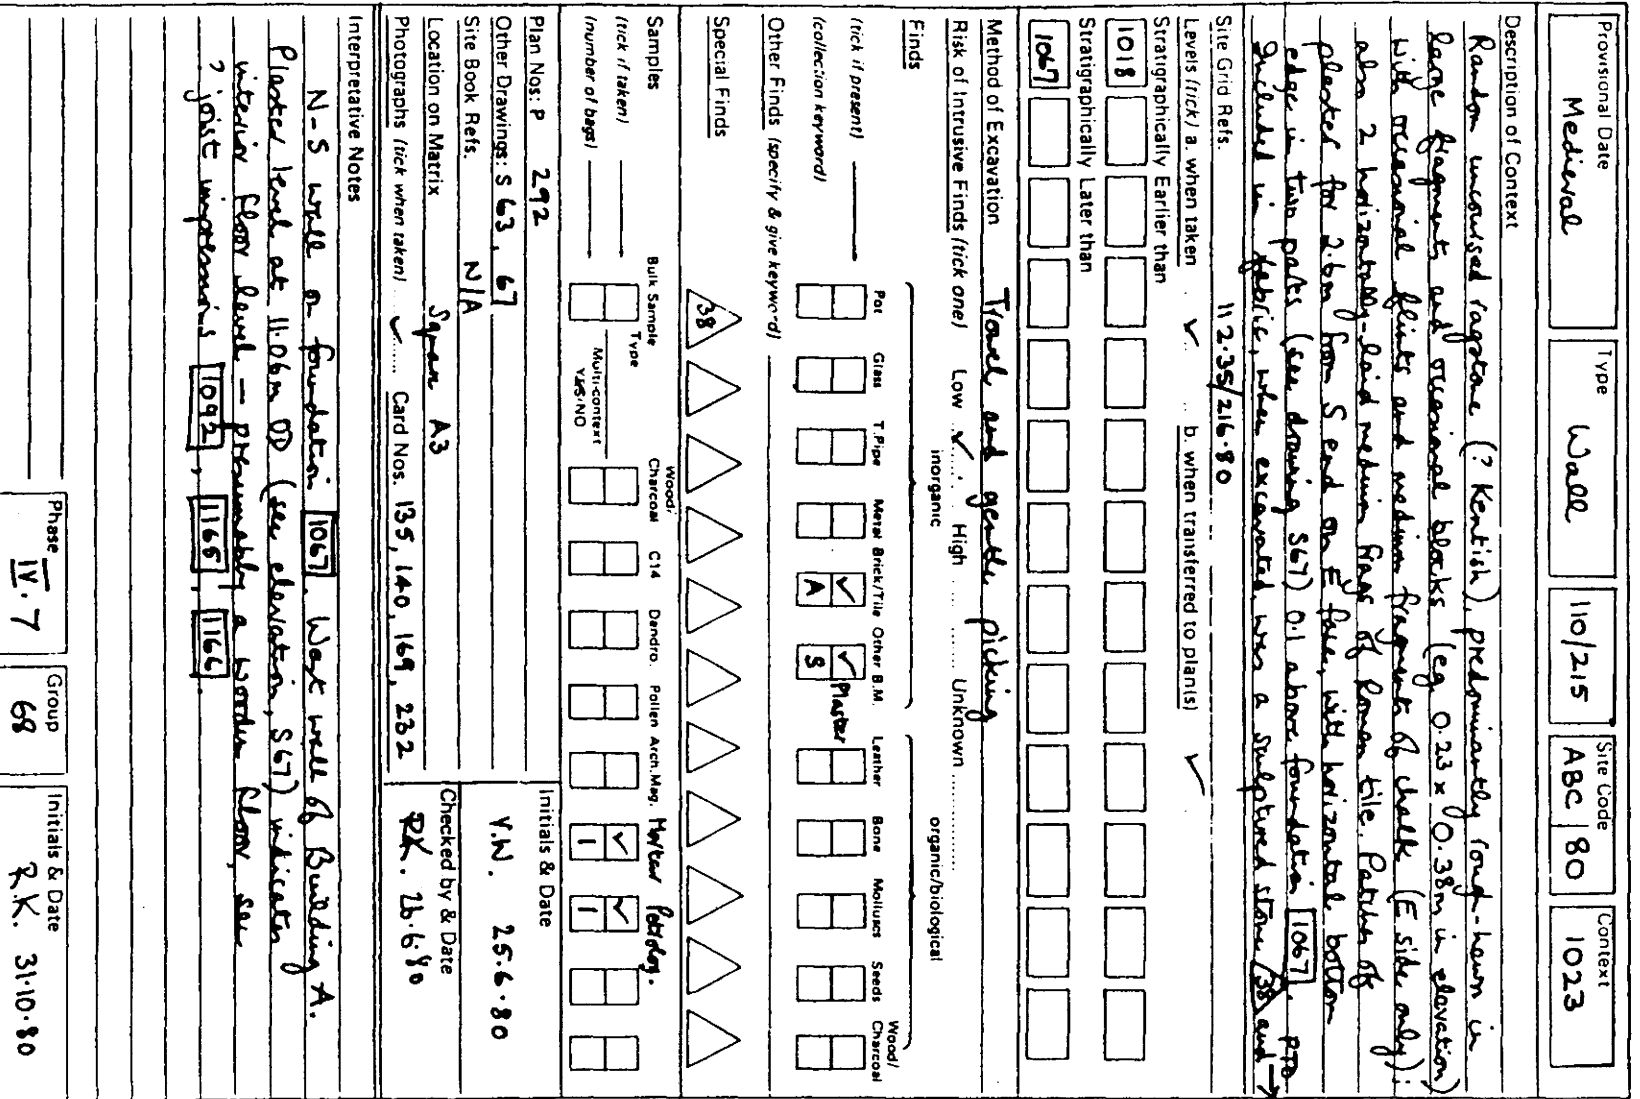 Provisional Date
Medieval
Type
Wall
110/215
Site Code
ABC 80
Context
1023
Description of Context
Random uncoursed ragstone (? Kentish), predominantly rough-hewn in
large fragments and occasional blocks (eg. 0.23 x 0.38m in elevation)
with occasional flints and medium fragments of chalk (E side only);
also 2 horizontally-laid medium frags of Roman tile. Patches of
plaster for 2.6m from S end on E face, with horizontal bottom
edge in two parts (see drawing S67) 0.1 above foundation 1067. PTO
Included in fabric, when excavated, was a sculptured stone 38 and →
Site Grid Refs. 112.35/216.80
Levels (tick) a. when taken ✓ b. when transferred to plan(s) ✓
Stratigraphically Earlier than
1018
Stratigraphically Later than
1067
Method of Excavation Trowel and gentle picking
Risk of Intrusive Finds (tick one) Low ✓ High Unknown
Finds
inorganic organic/biological
Pot Glass T.Pipe Metal Brick/Tile Other B.M. Leather Bone Molluscs Seeds Wood/Charcoal
(tick if present) ✓ ✓ Plaster
(collection keyword) A S
Other Finds (specify & give keyword)
Special Finds
38
Samples
Bulk Sample Type Wood/Charcoal C14 Dendro. Pollen Arch.Mag. Mortar Petrolog.
(tick if taken) ✓ ✓
(number of bags) Multi-context YES·NO 1 1
Plan Nos: P 292
Other Drawings: S 63, 67
Site Book Refs. N/A
Location on Matrix Square A3
Photographs (tick when taken) ✓ Card Nos. 135, 140, 169, 232
Initials & Date
Y.W. 25.6.80
Checked by & Date
R.K. 26.6.80
Interpretative Notes
N-S wall on foundation 1067. West wall of Building A.
Plaster level at 11.06m OD (see elevation, S67) indicates
interior floor level — presumably a wooden floor, see
? joist impressions 1092, 1165, 1166.
Phase
IV.7
Group
68
Initials & Date
R.K. 31.10.80